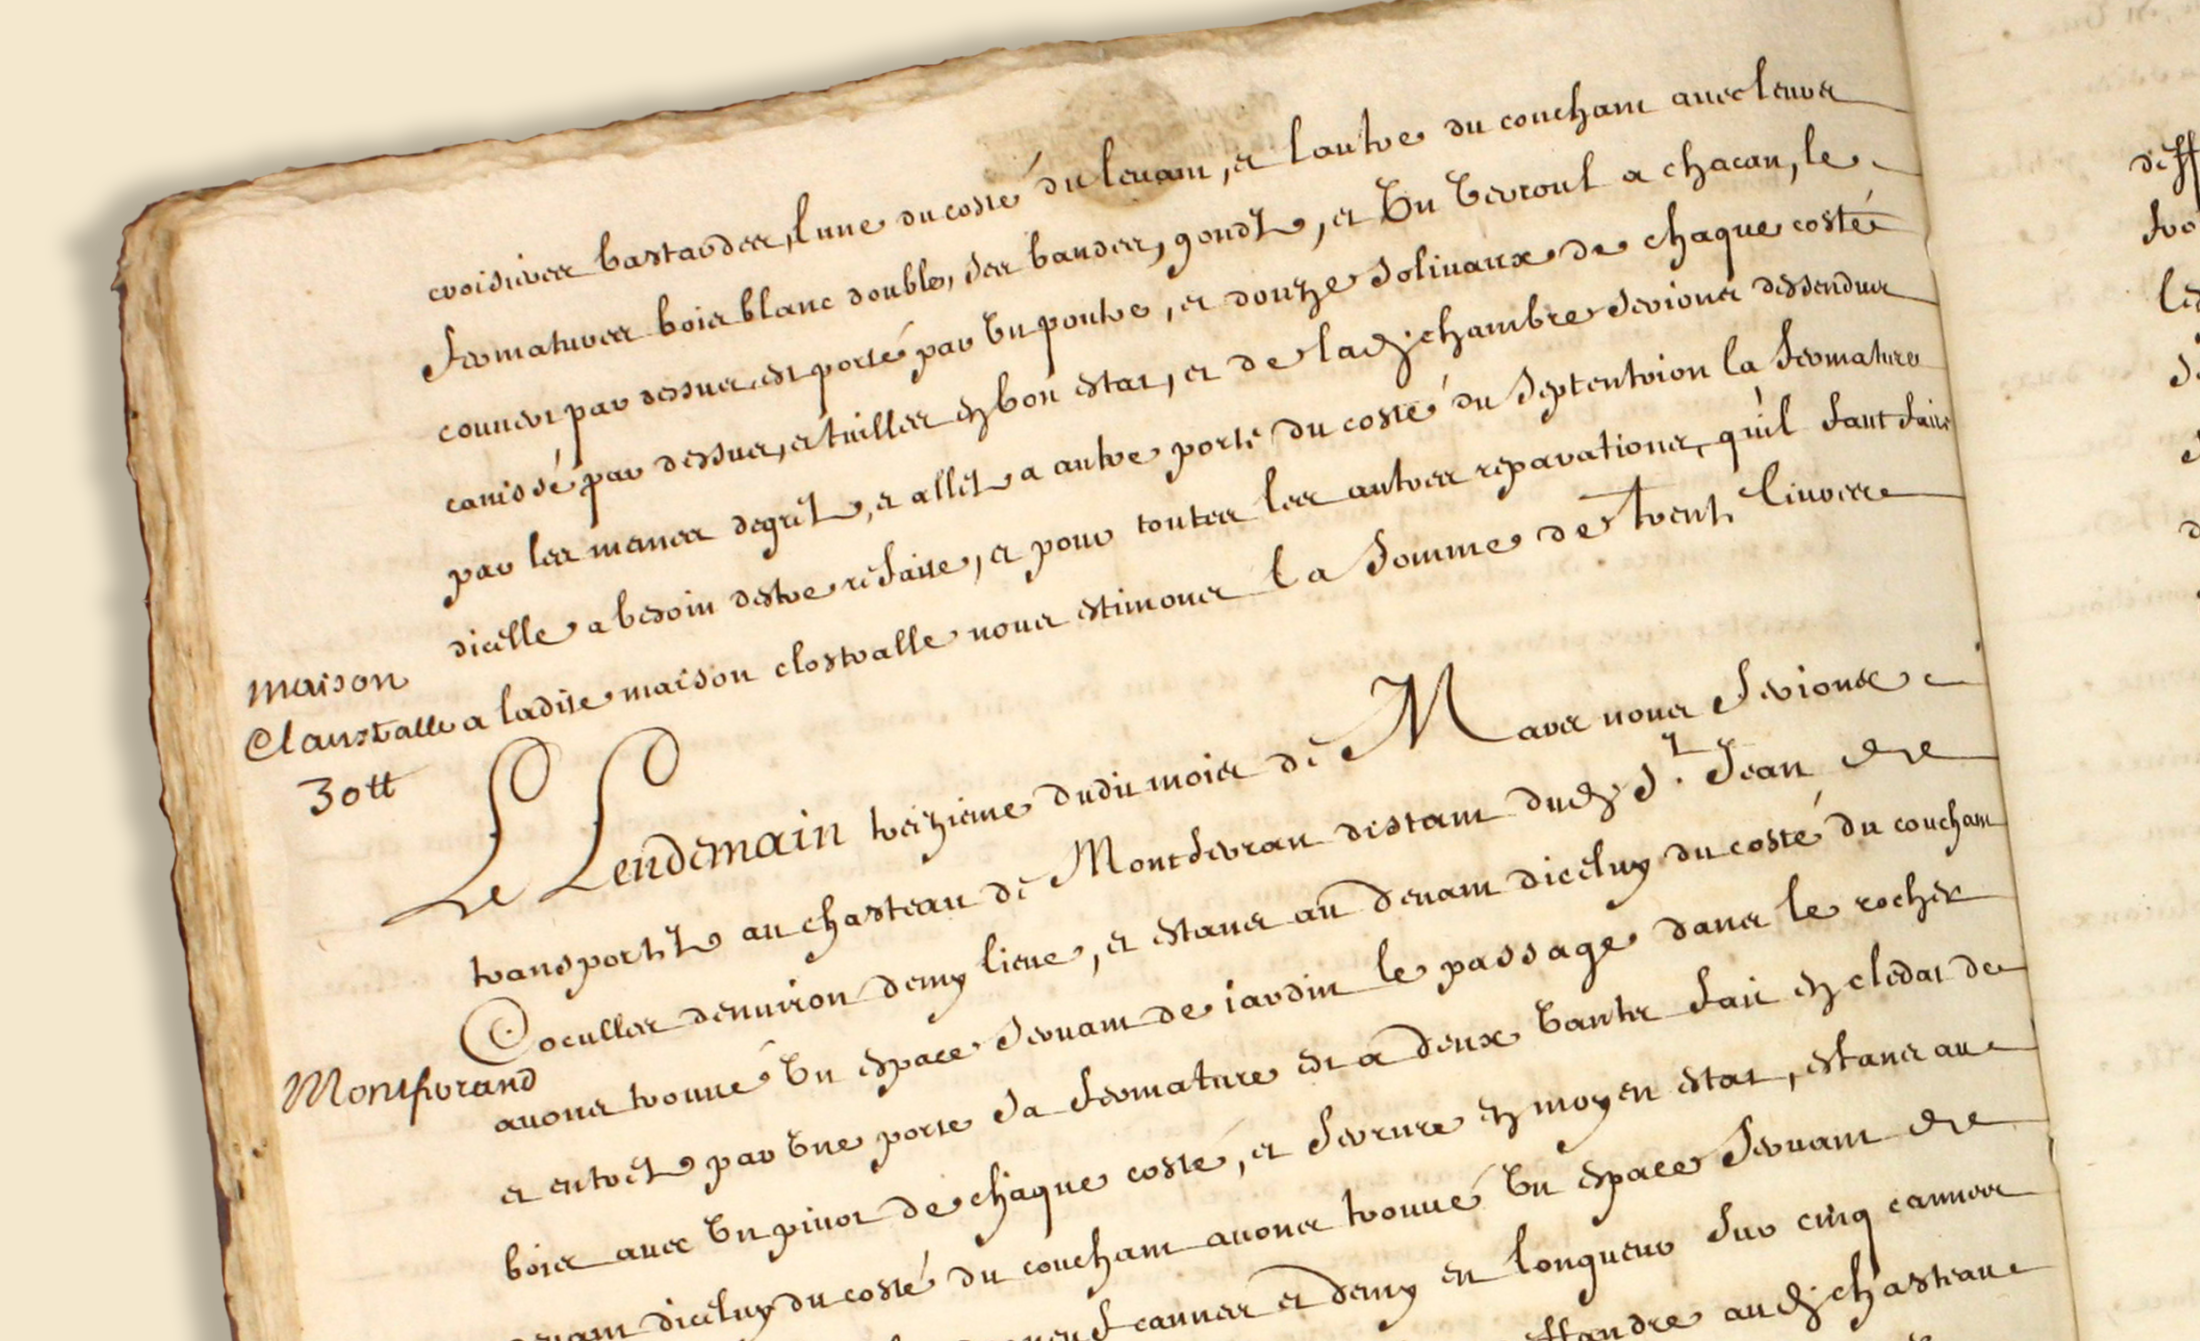 croisieres bastardes, l'une du costé du levant, et l'autre du couchant avec leurs
fermatures bois blanc double, ses bandes, gondz, et un verroul a chacun, le
couvert par dessus est porté par un poutre, et douze solivaux de chaque costé
canissé par dessus, et tuilles en bon estat, et de lad. chambre serions dessendus
par les memes degrez, et allez a autre porte du costé du septentrion la fermature
dicelle a besoin destre refaite, et pour toutes les autres reparations, quil faut faire
a ladite maison clostralle nous estimons la somme de trente livres
maison
Claustralle
30tt
Le Lendemain treizieme dudit mois de Mars nous serions
transportez au chasteau de Montferran distant dud. St. Jean de
Coculles denviron demy lieue, et estans au devant diceluy du costé du couchant
avons trouvé un espace servant de jardin le passage dans le rocher
Montferrand
et entrez par une porte sa fermature est a deux vantz fait en cledat de
bois avec un pivot de chaque costé, et serrure en moyen estat, estans au
devant diceluy du costé du couchant avons trouvé un espace servant de
cannes et demy en longueur sur cinq cannes
aud. chasteau
deff
les